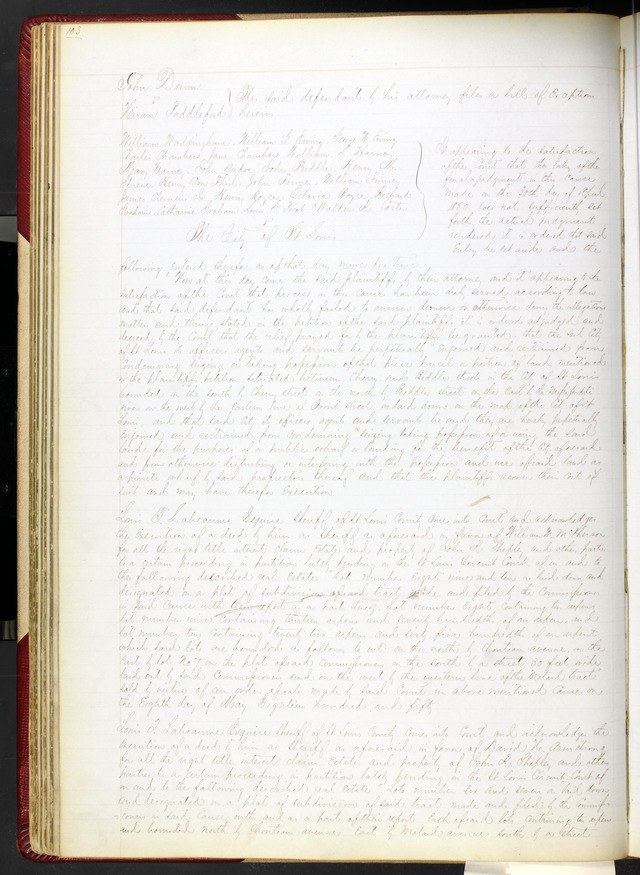 103
John Dunn
vs
Hiram Paddleford
The said defendant by his attorney files a bill of Exceptions
herein
William Waddingham William G Ewing George W Ewing
Charles Chambers Jane Chambers William
John Riddle Henry
John
James Clemens Jr Henry Boyce Octavia Boyce Richard
Catharine Graham Louis Walker R Carter
vs
The City of St Louis
It appearing to the satisfaction
of the Court that the Entry of the
final judgment in this cause
made on the 30th day of April
1850 does not sufficiently set
forth the actual judgment
rendered it is ordered that said
Entry be set aside and the
following entered therefor as of that day nunc pro tunc
Now at this day come the said plaintiffs by their attorney and it appearing to the
satisfaction of the Court that process in this cause has been duly served according to law
and that said defendant has wholly failed to answer demur or otherwise deny the allegations
matters and things stated in the petition of the said plaintiffs it is ordered adjudged and
decreed by the Court that the relief prayed for by the plaintiffs be granted, that the said City
of St Louis its officers agents and servants be perpetually enjoined and restrained from
condemning seizing or taking possession of that piece parcel or portion of land mentioned
in the plaintiffs petition situated between Cherry and Biddle streets in the City of St Louis
bounded on the south by Cherry street on the north by Biddle street on the East by the Mississippi
river on the west by the Eastern line of Front Street, as laid down on the map of the City of St
Louis, and that said City its officers agents and servants be and they are hereby perpetually
enjoined and restrained from condemning seizing taking possession of or using the said
land for the purposes of a public wharf or landing for the benefit of the City aforesaid
and from otherwise disturbing or interfering with the possession and use of said land as
a private wharf by said proprietors thereof And that the plaintiffs recover their costs of
suit and may have therefor Execution
Louis T Labeaume Esquire Sheriff of St Louis County comes into Court and acknowledges
the Execution of a deed by him as Sheriff as aforesaid in favor of William M McPherson
for all the right title interest claim Estate and property of John R Shepley and other parties
to a certain proceeding in partition lately pending in the St Louis Circuit Court of in and to
the following described real Estate Lots number Eight nine and ten as laid down and
designated on a plat of subdivision of said tract made and filed by the Commissioners
in said cause with their report as a part thereof Lot number Eight, containing ten arpens
lot number nine containing thirteen arpens and seventy hundredths of an arpen and
lot number ten containing twenty two arpens and sixty three hundredths of an arpent
which said lots are bounded as follows to wit: on the north by Chouteau avenue, on the
East by lot No 7 on the plat of said Commissioners, on the south by a street 60 feet wide
laid out by said Commissioners and on the west by the western line of the tract
Sold by virtue of an order of sale made by said Court in above mentioned cause on
the Eighth day of May Eighteen hundred and fifty
Louis T Labeaume Esquire Sheriff of St Louis County comes into Court and acknowledges the
Execution of a deed by him as Sheriff as aforesaid in favor of David H Armstrong
for all the right title interest claim Estate and property of John R Shepley and other
parties to a certain proceeding in partition lately pending in the St Louis Circuit Court of
in and to the following described real Estate Lots number six and seven as laid down
and designated on a plat of subdivision of said tract made and filed by the Commis-
sioners in said cause with and as a part of their report Each of said lots containing ten arpens
and bounded north by Chouteau avenue East by avenue south by a street